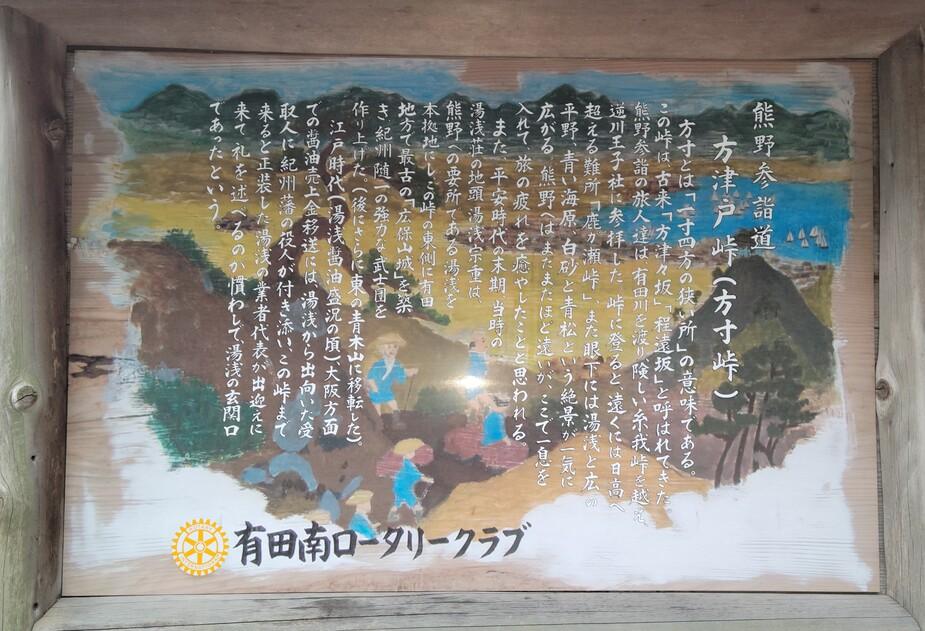 熊野参詣道
方津戸峠(方寸峠)
方寸とは「一寸四方の狭い所」の意味である。
この峠は、古来「方津々坂」「程遠坂」と呼ばれてきた。
熊野参詣の旅人達は、有田川を渡り険しい糸我峠を越え
逆川王子社に参拝した。峠に登ると、遠くには日高へ
超える難所「鹿ヶ瀬峠」、また眼下には湯浅と広の
平野、青い海原、白砂と青松という絶景が一気に
広がる。熊野へはまだまだほど遠いが、ここで一息を
入れて、旅の疲れを癒やしたことと思われる。
また、平安時代の末期、当時の
湯浅荘の地頭湯浅宗重は、
熊野への要所である湯浅を
本拠地にし、この峠の東側に有田
地方で最古の「広保山城」を築
き、紀州随一の強力な武士団を
作り上げた。(後にさらに東の青木山に移転した)。
江戸時代(湯浅醤油盛況の頃)大阪方面
での醤油売上金移送には、湯浅から出向いた受
取人に紀州藩の役人が付き添い、この峠まで
来ると正装した湯浅の業者代表が出迎えに
来て、礼を述べるのが慣わしで湯浅の玄関口
であったという。
有田南ロータリークラブ